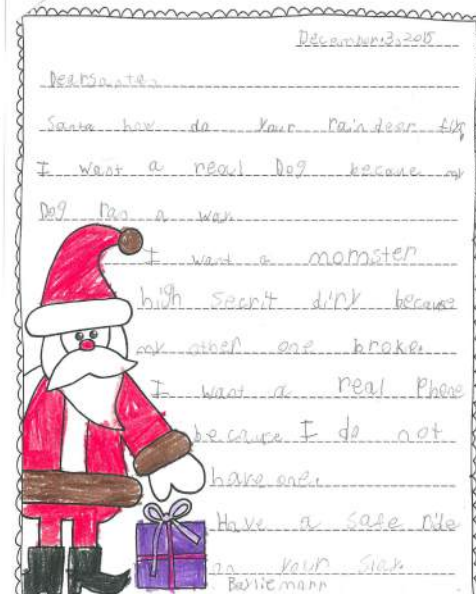 December 3, 2015
Dear Santa
Santa how do your rain dear fly
I want a real Dog because my
Dog ran a way.
I want a momster
high secrit diry because
my other one broke.
I want a real Phone
because I do not
have one.
Have a safe ride
on your slay